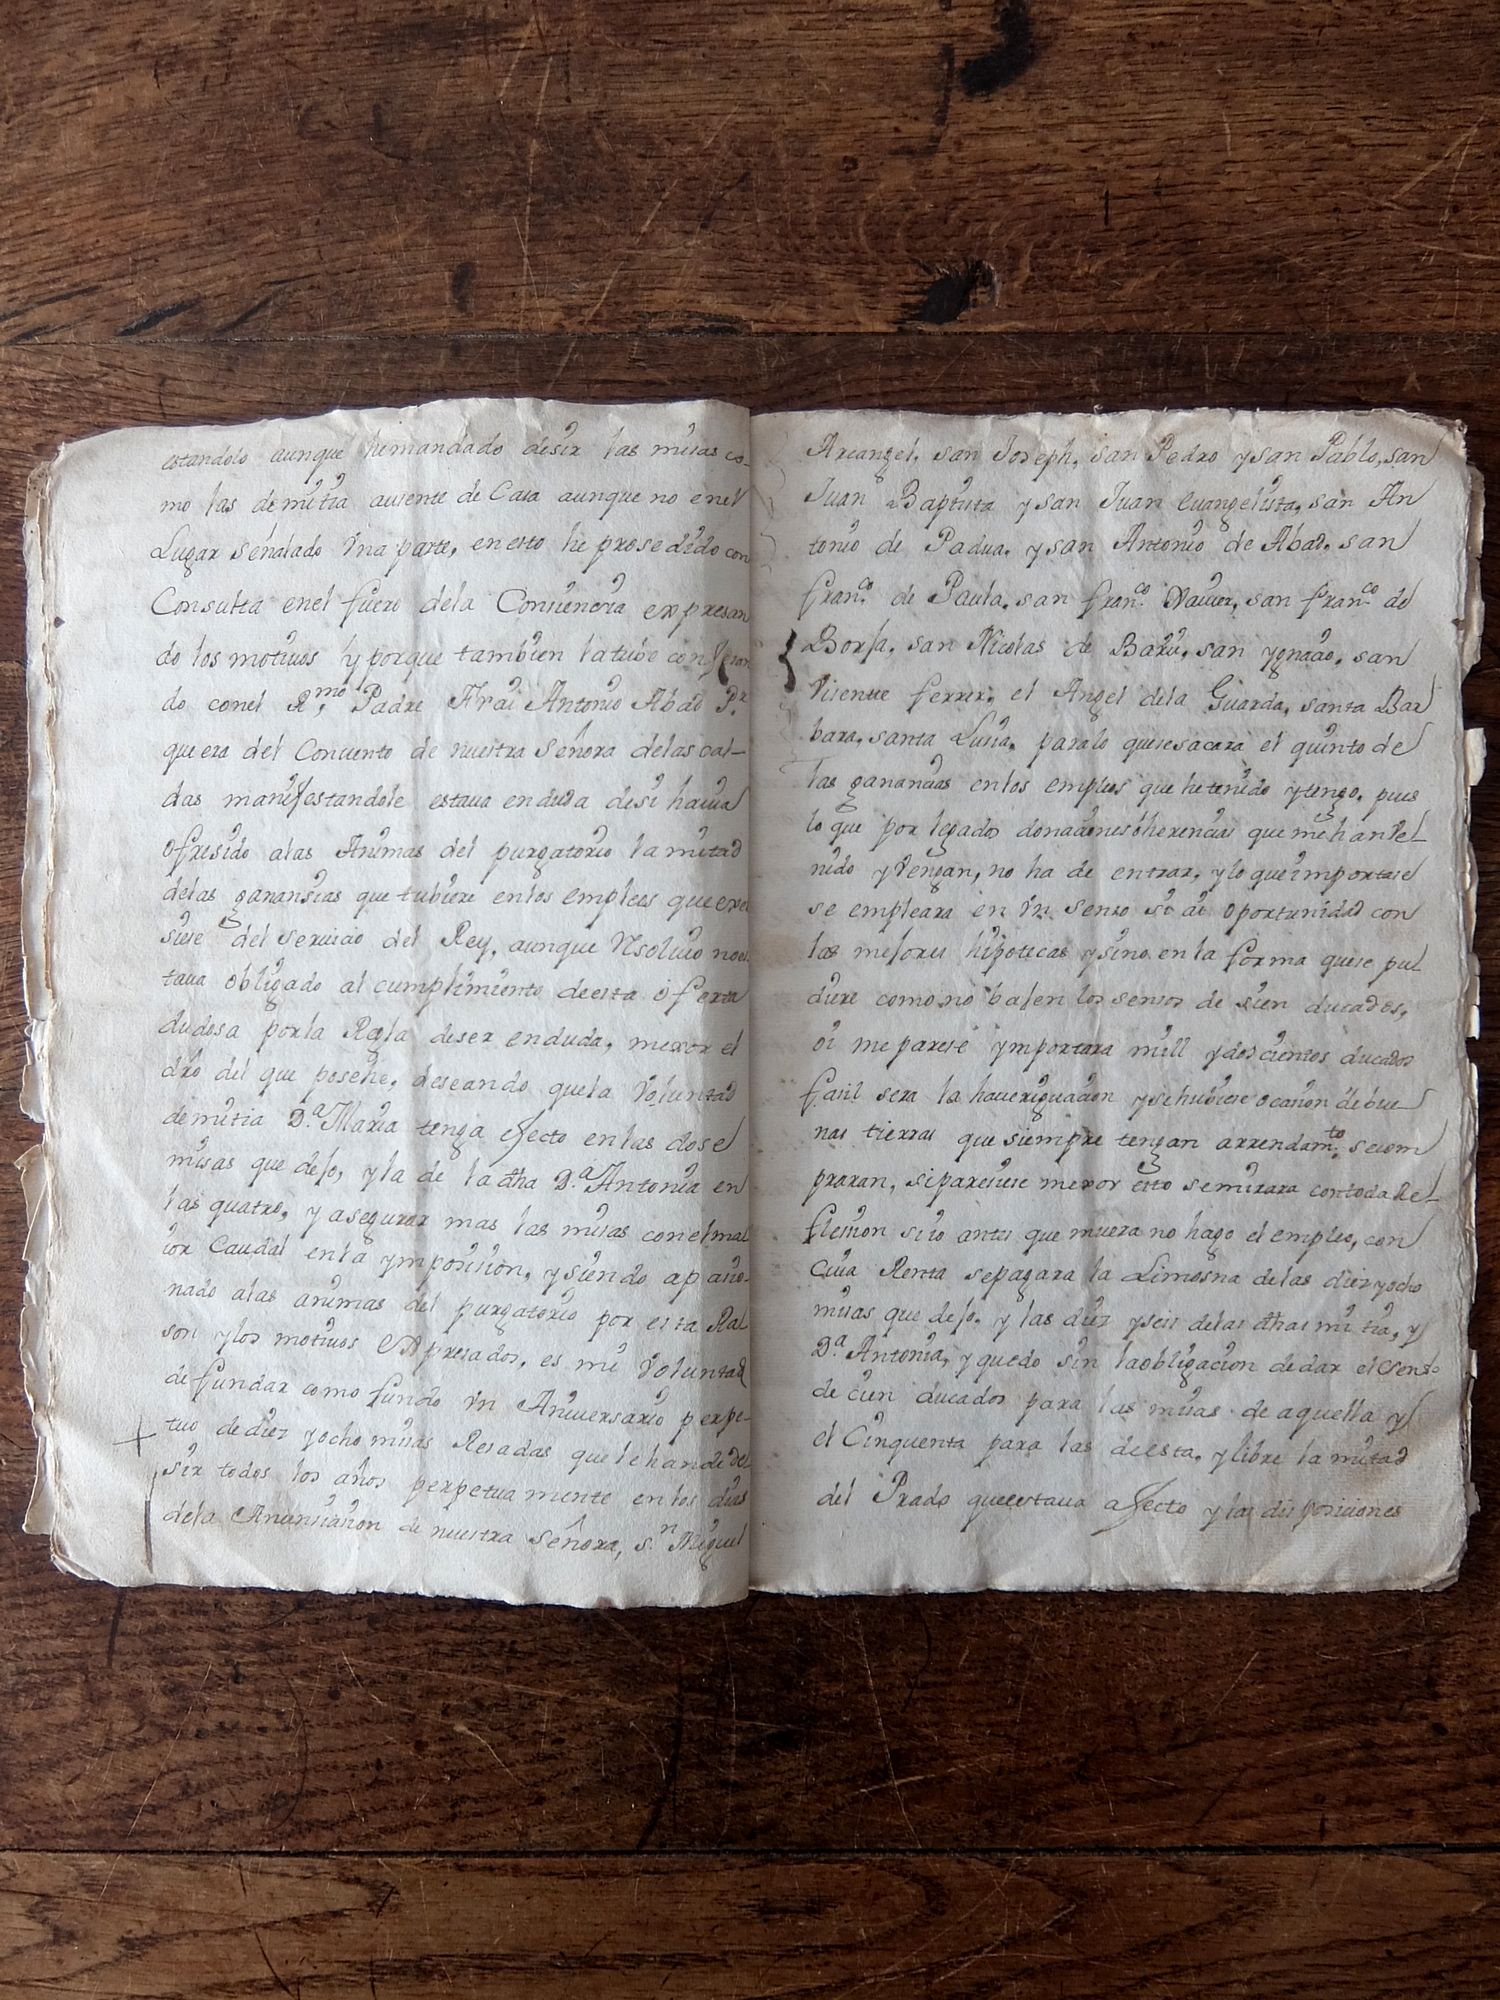 estandolo aunque he mandado desir las misas co-
mo las de mi tia ausente de Casa aunque no en el
Lugar señalado Vna parte, en esto he prosedido con
Consulta en el fuero de la Consiencia expresan
do los motiuos y porque tambien la tube con feran
do con el R.mo Padre Frai Antonio Abad P.r
que era del Conuento de nuestra Señora de las cal-
das manifestandole estaua en duda de si hauia
ofresido a las Animas del purgatorio la mitad
de las ganansias que tubiere en los empleos que exe
siese del seruicio del Rey, aunque Rsoluio no es
taua obligado al cumplimiento de esta oferta
dudosa por la Regla de ser en duda, mexor el
dro del que posehe, deseando que la Voluntad
de mi tia D.a Maria tenga efecto en las dose
misas que dejo, y la de la dha D.a Antonia en
las quatro, y asegurar mas las misas con el mai
ior Caudal en la ymposision, y siendo apasio-
nado a las animas del purgatorio por esta Ra
son y los motiuos Expresados, es mi Voluntad
de fundar como fundo Vn Aniuersario perpe-
tuo de diez y ocho misas Resadas que se han de de
sir todos los años perpetuamente en los dias
de la Anunsiasion de nuestra Señora, S.n Miguel
Arcangel, san Joseph, san Pedro y san Pablo, san
Juan Baptista y san Juan Euangelista, san An
tonio de Padua, y san Antonio de Abad, san
fran.co de Paula, san fran.co Xauier, san fran.co de
Borja, san Nicolas de Bari, san ygnacio, san
Visente ferrer, el Angel de la Guarda, santa Bar
bara, santa Lusia, para lo que se sacara el quinto de
las ganancias en los empleos que he tenido y tengo, pues
lo que por legados donaciones o herencias que me han Ve
nido y Vengan, no ha de entrar, y lo que importase
se empleara en Vn senso si ai oportunidad con
las mejores hipotecas y sino en la forma que se pu
diere como no balen los sensos de sien ducados,
oi me parese ymportara mill y doscientos ducados
fasil sera la haueriguacion y si hubiese ocasion de bue
nas tierras que siempre tengan arrendam.to se com
praran, si paresiese mexor esto se mirara con toda Re
flesion si io antes que muera no hago el empleo, con
Cuia Renta se pagara la Limosna de las diez y ocho
misas que dejo, y las diez y seis de las dhas mi tia, y
D.a Antonia, y quedo sin la obligacion de dar el Senso
de cien ducados para las misas de aquella y
el Cinquenta para las de esta, y libre la mitad
del Prado que estaua afecto y las disposiciones